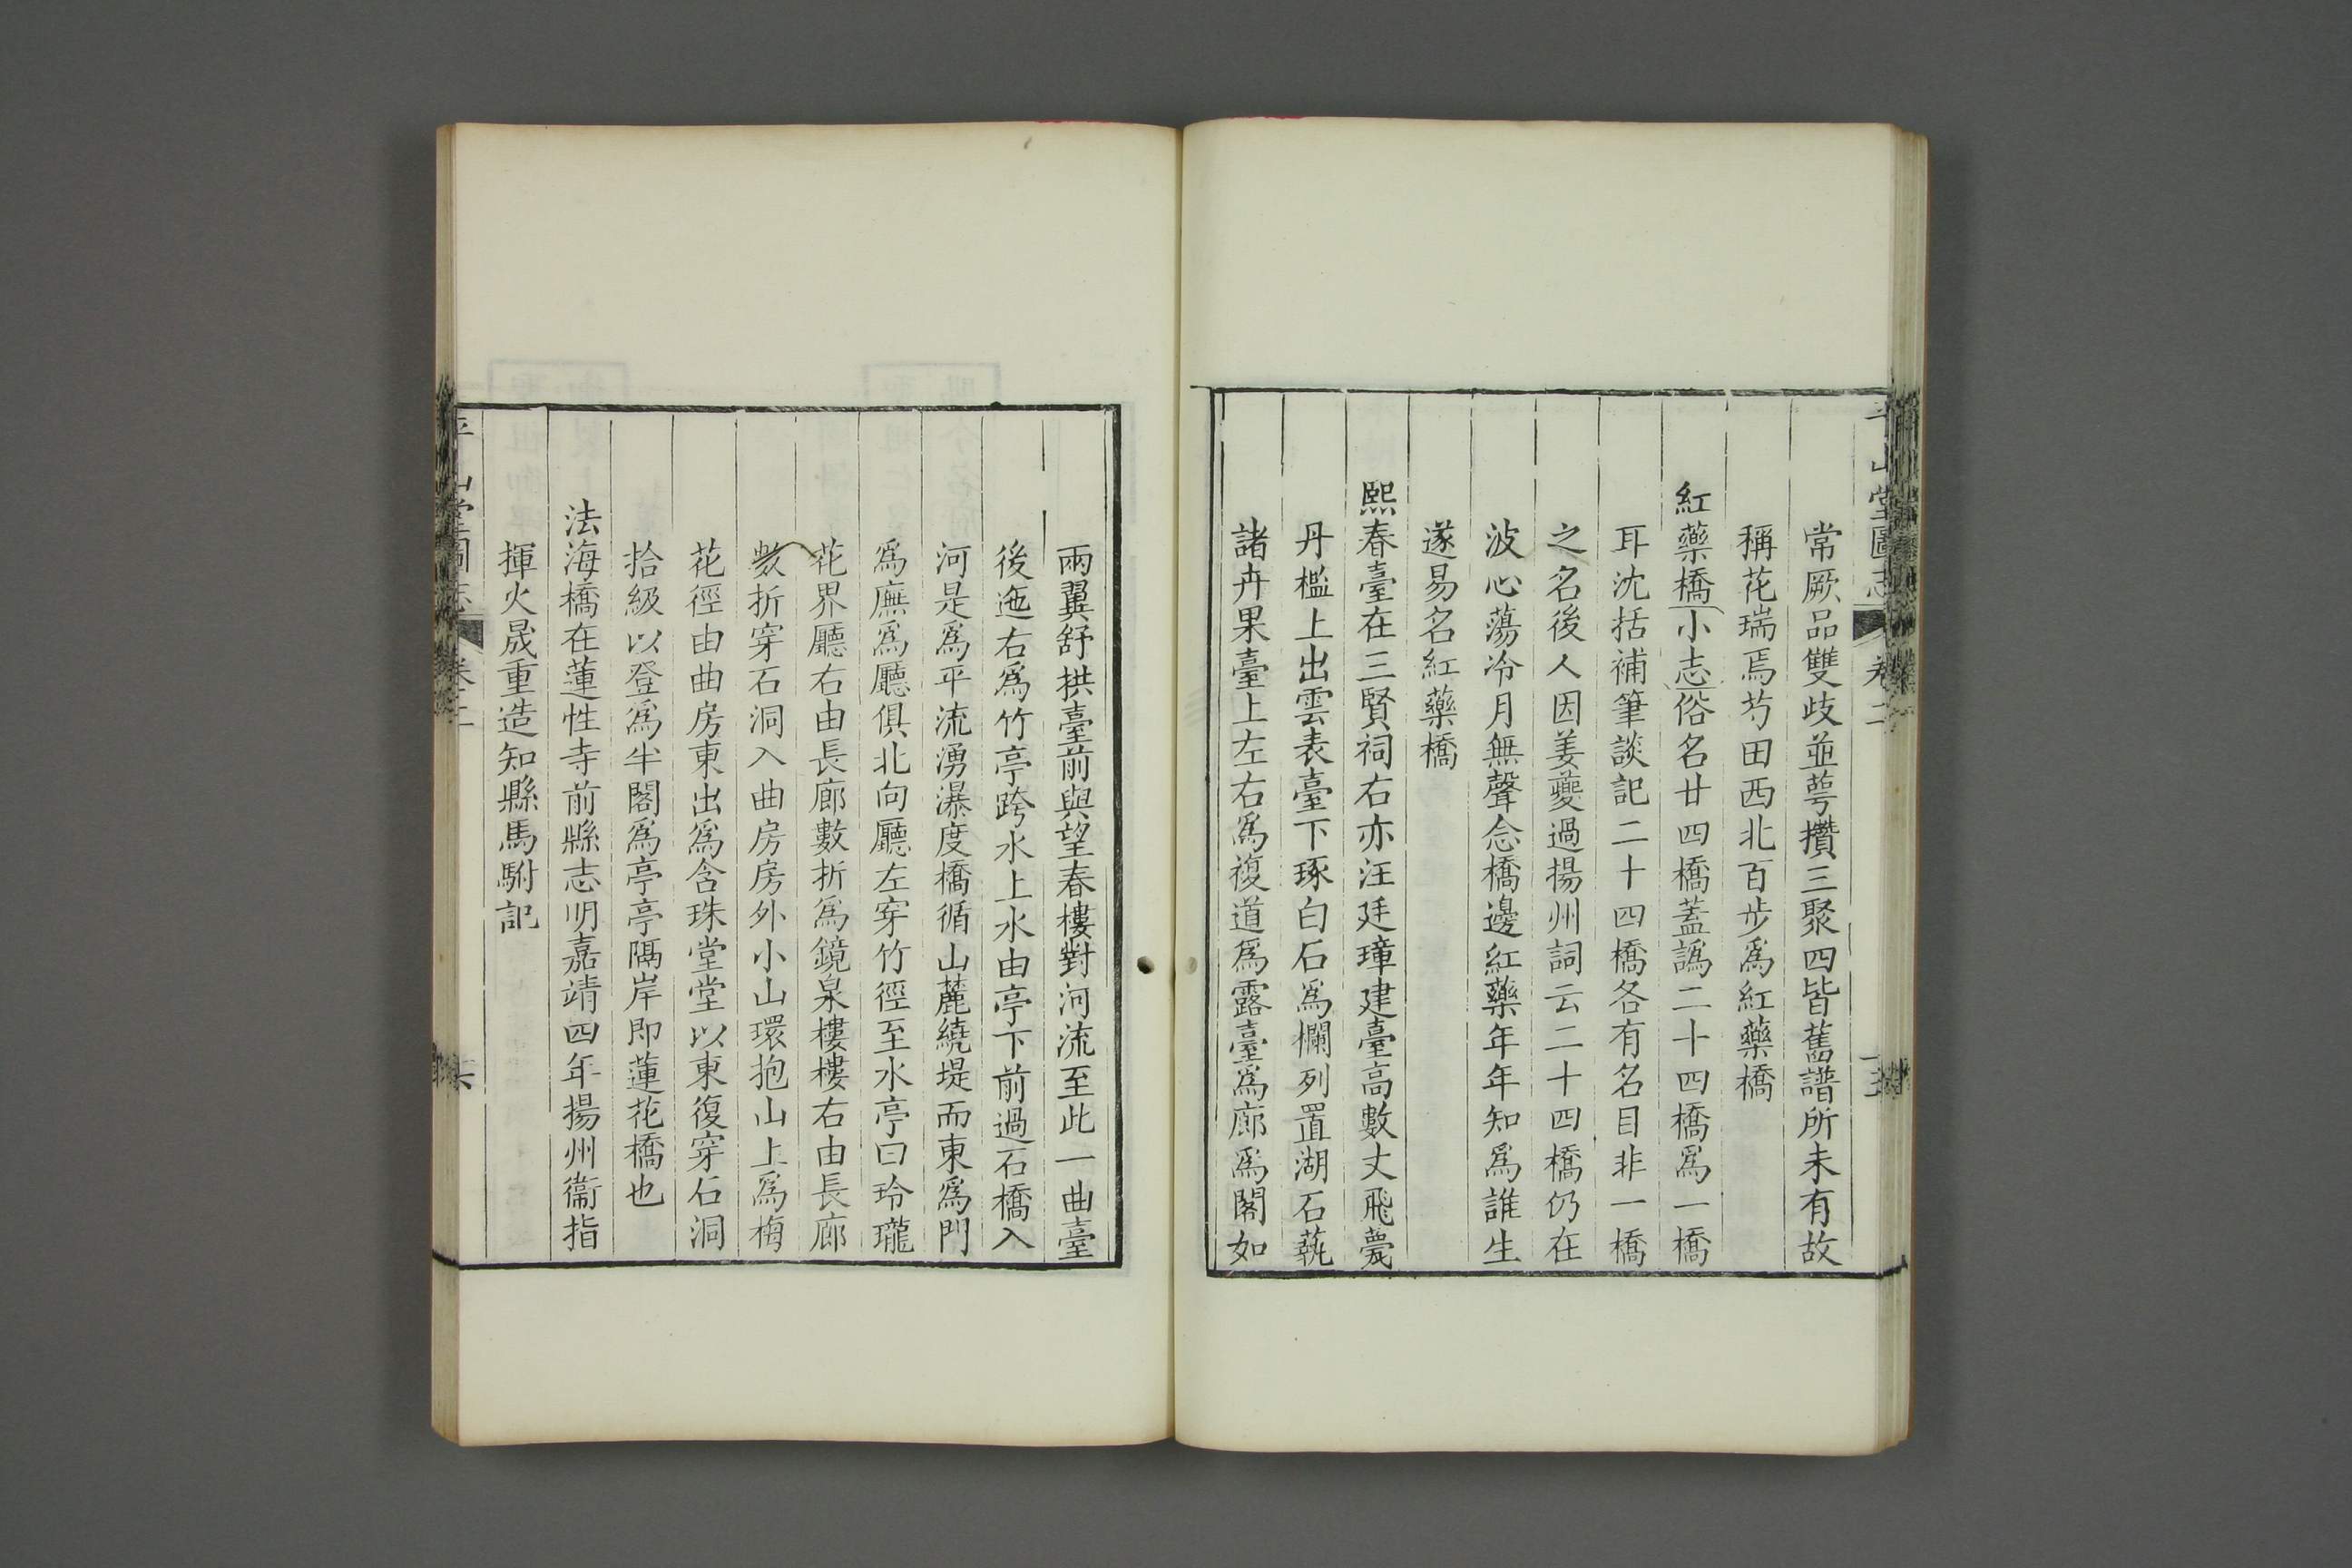 平山堂圖志 卷二
常厥品雙歧並萼攢三聚四皆舊譜所未有故
稱花瑞焉芍田西北百步爲紅藥橋
紅藥橋小志俗名廿四橋蓋譌二十四橋爲一橋
耳沈括補筆談記二十四橋各有名目非一橋
之名後人因姜夔過揚州詞云二十四橋仍在
波心蕩冷月無聲念橋邊紅藥年年知爲誰生
遂易名紅藥橋
熙春臺在三賢祠右亦汪廷璋建臺高數丈飛甍
丹檻上出雲表臺下琢白石爲欄列置湖石蓺
諸卉果臺上左右爲複道爲露臺爲廊爲閣如
兩翼舒拱臺前與望春樓對河流至此一曲臺
後迤右爲竹亭跨水上水由亭下前過石橋入
河是爲平流湧瀑度橋循山麓繞堤而東爲門
爲廡爲廳俱北向廳左穿竹徑至水亭曰玲瓏
花界廳右由長廊數折爲鏡泉樓樓右由長廊
數折穿石洞入曲房房外小山環抱山上爲梅
花徑由曲房東出爲含珠堂堂以東復穿石洞
拾級以登爲半閣爲亭亭隔岸即蓮花橋也
法海橋在蓮性寺前縣志明嘉靖四年揚州衞指
揮火晟重造知縣馬駙記
平山堂圖志 卷二